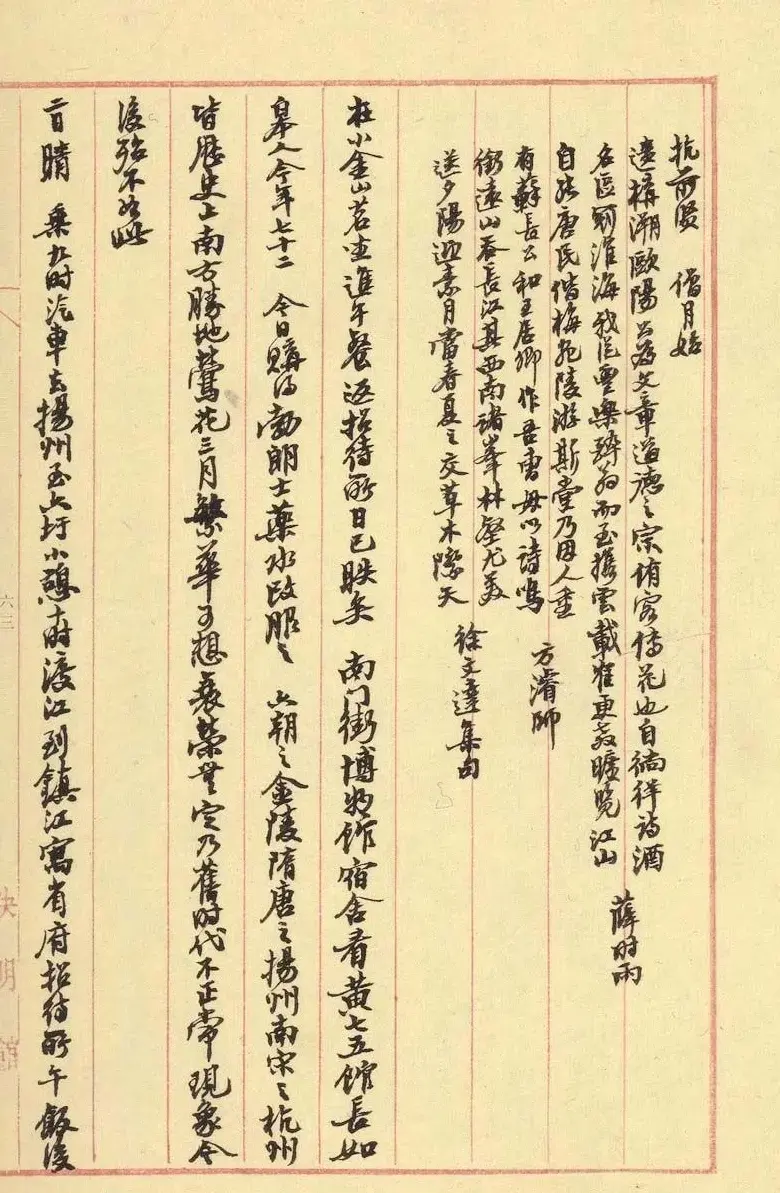 抗前賢　僧月始
遺構溯歐陽公為文章道德之宗侑客傳花也自徜徉詩酒
名區冠淮海我從豐樂醉翁而至攜雲載崔更教曠覽江山　薛时雨
自民偕梅宛陵游斯堂乃因人重
有蘇長公和王居卿作吾曹毋以詩鳴　方濬師
銜遠山吞長江其西南諸峯林壑尤美
送夕陽迎素月當春夏之交草木際天　徐文達集句
在小金山茗坐進午餐返招待所日已昳矣　南门街博物館宿舍看黄七五館長如
皋人今年七十二　今日購得勃朗士藥水改服之　六朝之金陵隋唐之揚州南宋之杭州
皆歷史上南方勝地鶯花三月繁華可想衰榮無定乃舊时代不正常現象今
後殆不如此
日晴　乘九时汽車去揚州至六圩小憩十时渡江到鎮江寓省府招待所午飯後
六三
决明館